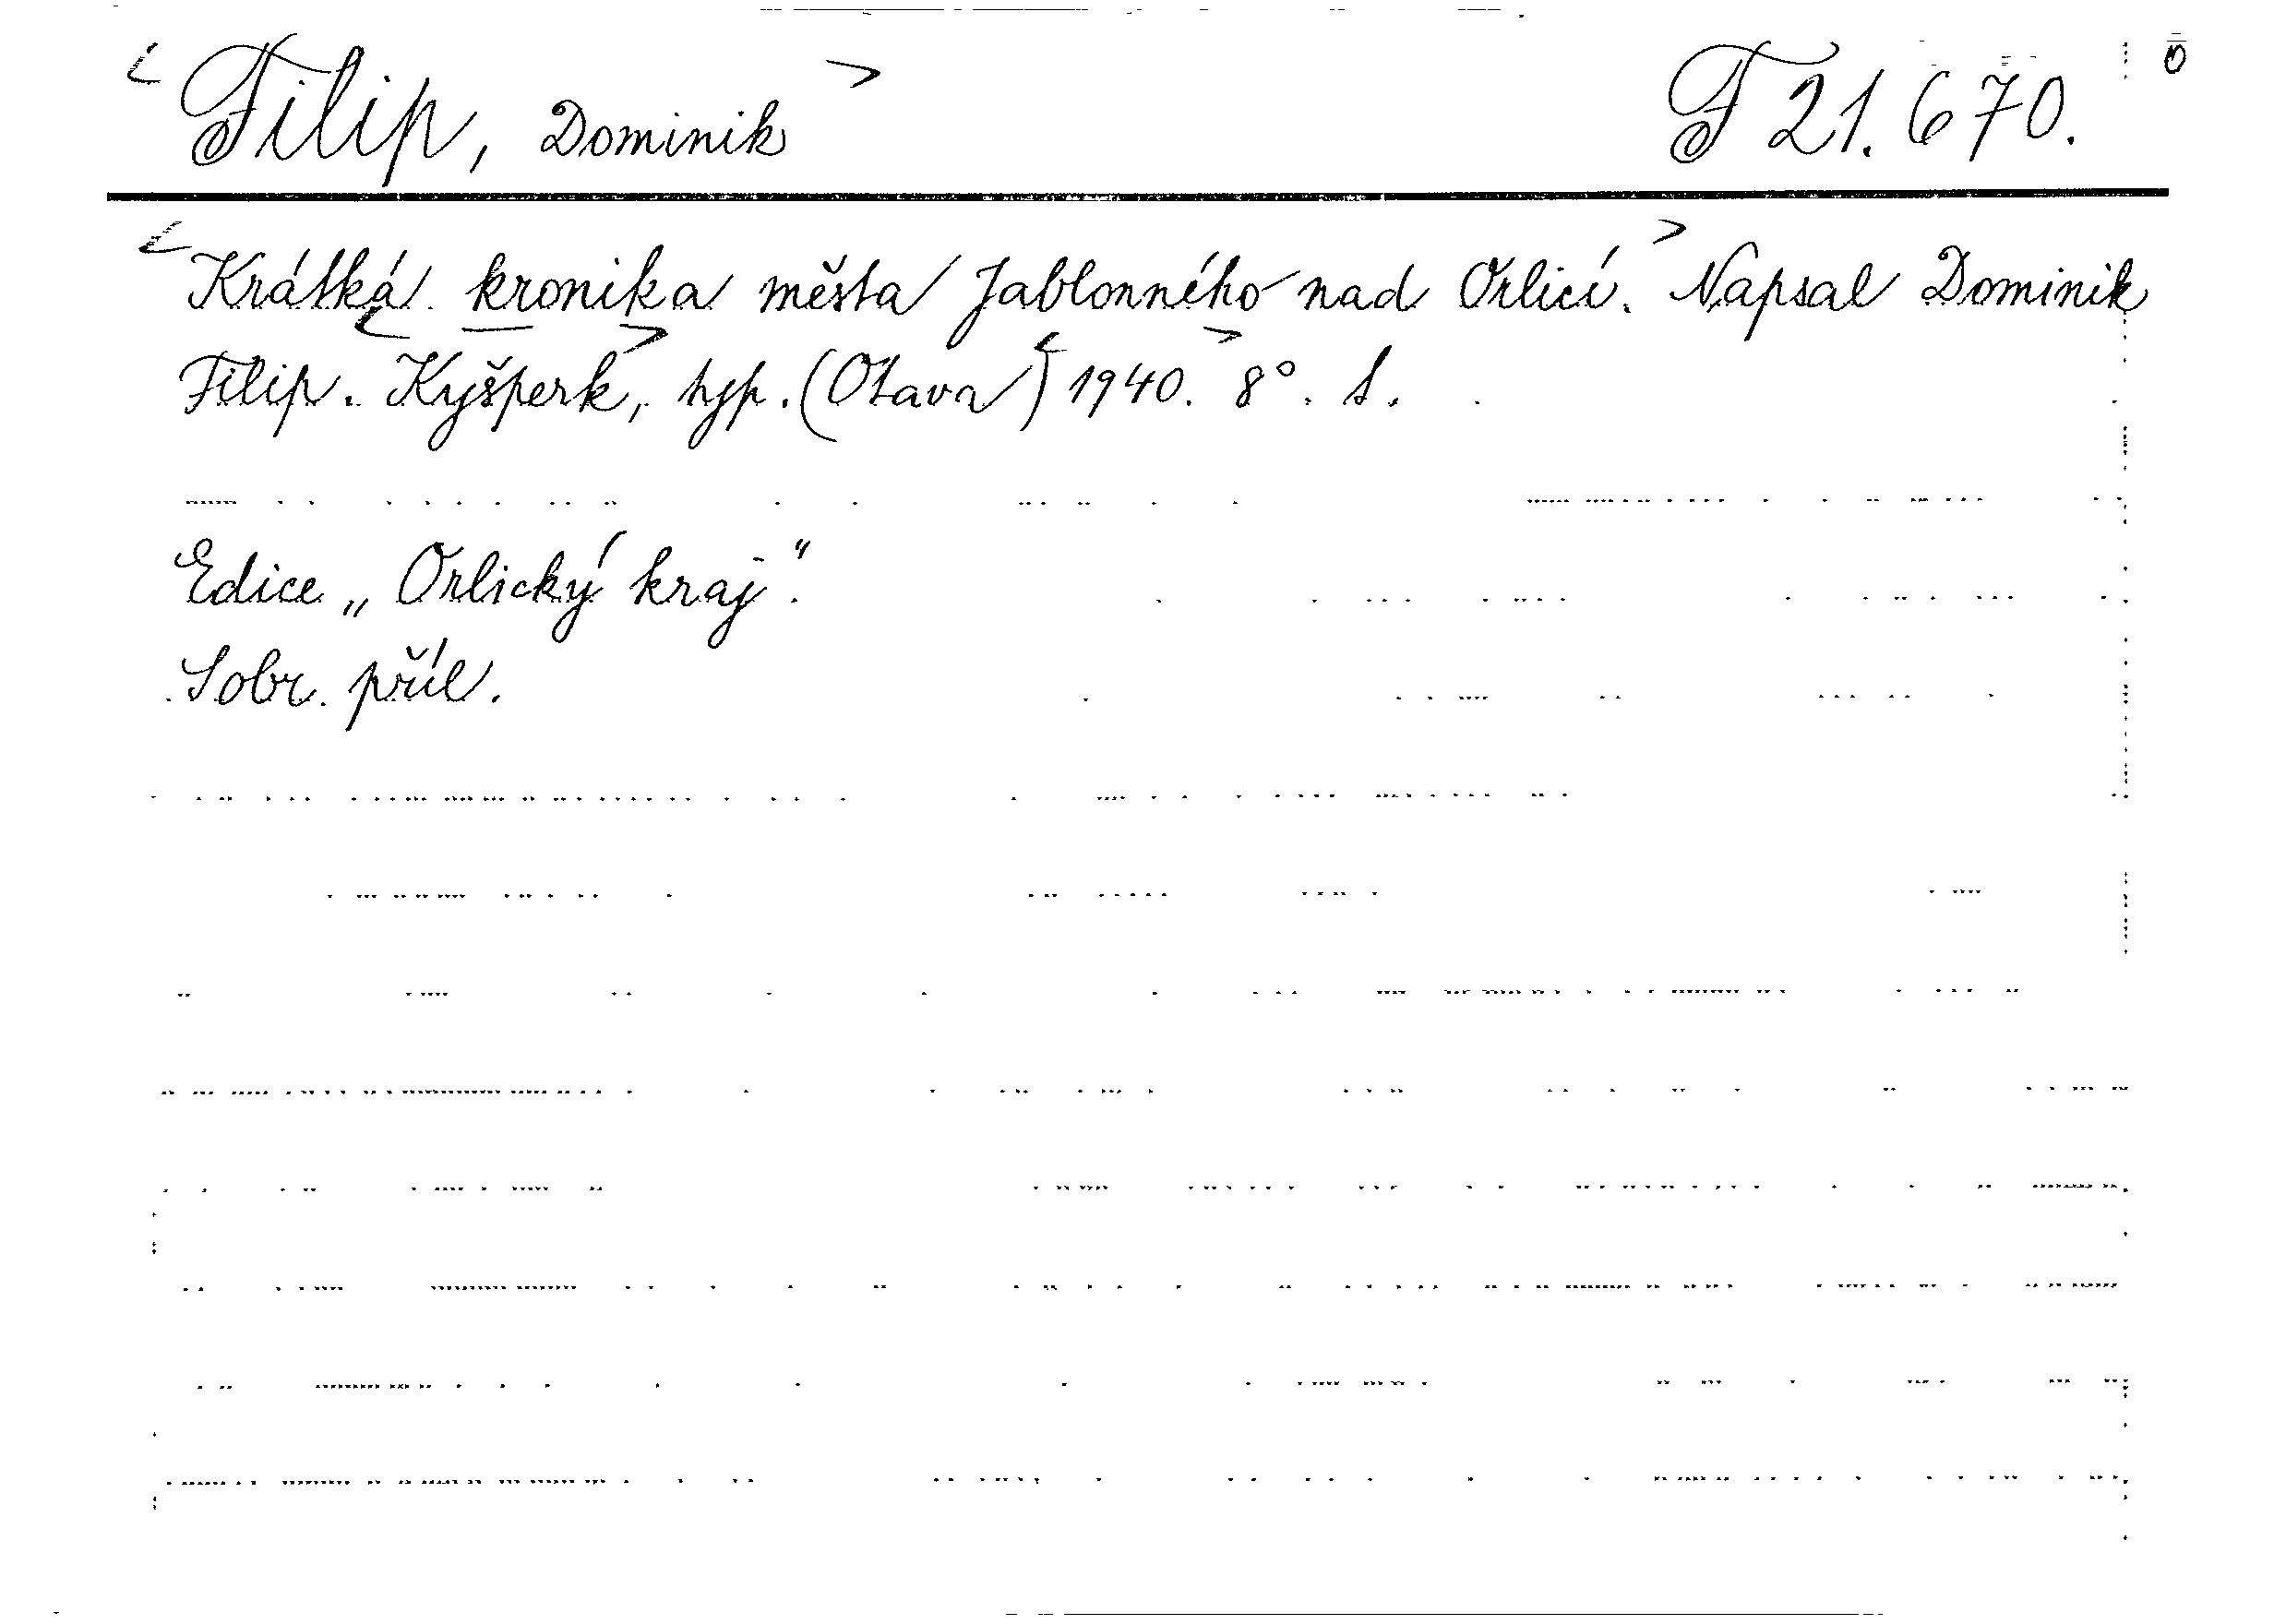 <Filip, Dominik> F 21.670. o
<Krátká kronika města Jablonného nad Orlicí.> Napsal Dominik
Filip. <Kyšperk>, typ. (Otava) <1940.> 8°. S.
Edice „Orlický kraj“.
Sobr. příl.